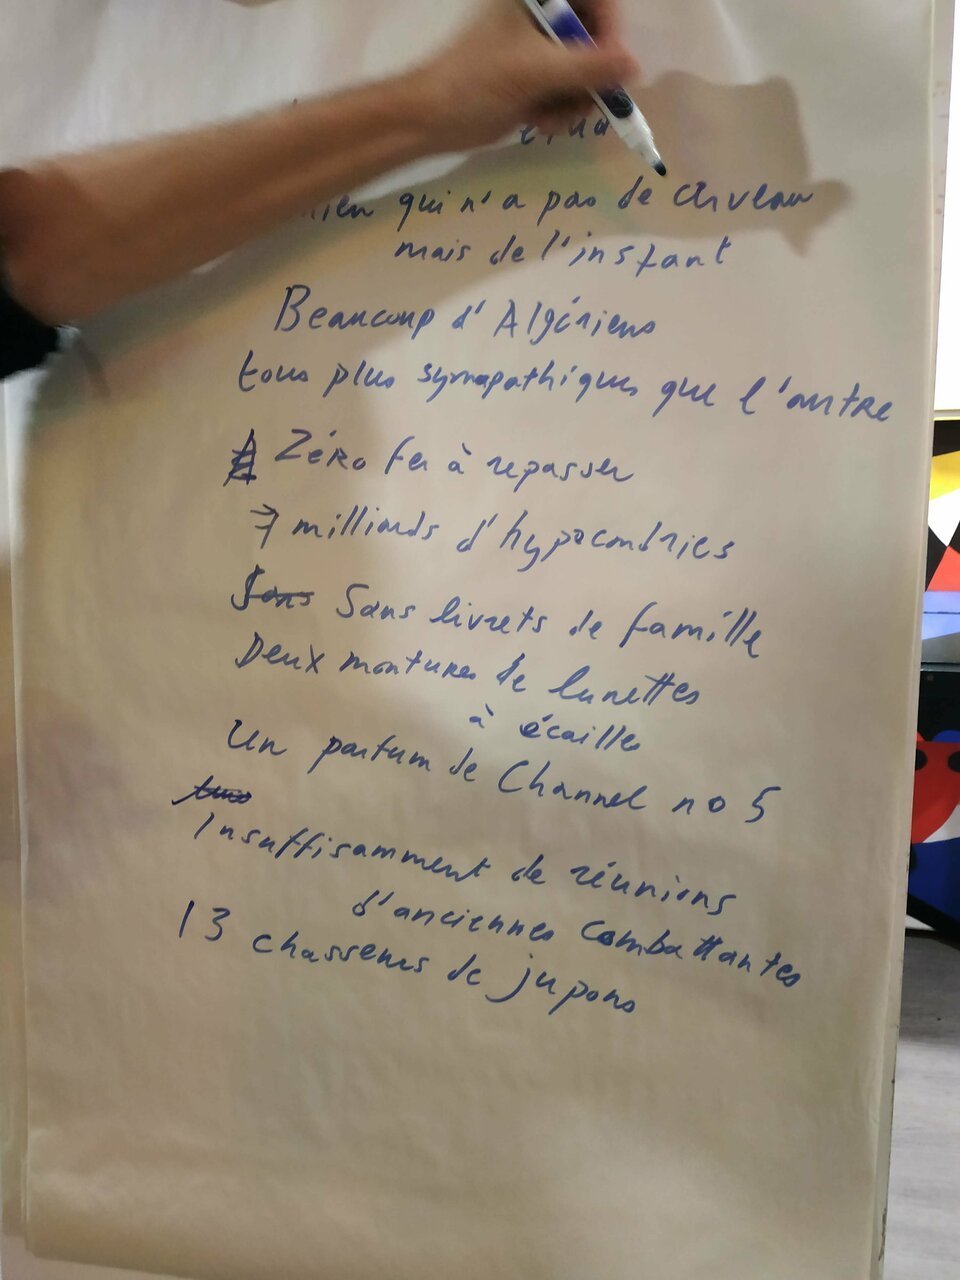 qui n'a pas de cerveau
mais de l'instant
Beaucoup d'Algériens
tous plus symapathiques que l'autre
Zéro fer à repasser
7 milliards d'hypocondries
Sans Sans livrets de famille
Deux montures de lunettes
à écailles
Un parfum de Channel no 5
Insuffisamment de réunions
d'anciennes Combattantes
13 chasseurs de jupons